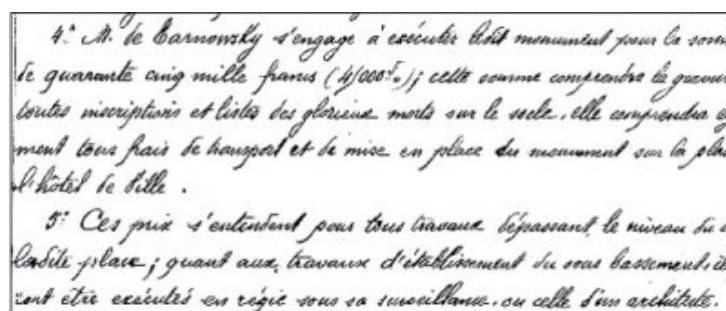 4.° M. de Tarnowsky s'engage à exécuter ledit monument pour la som
de quarante cinq mille francs (45000f.); cette somme comprendra la gravu
toutes inscriptions et listes des glorieux morts sur le socle, elle comprendra
ment tous frais de transport et de mise en place du monument sur la pla
l'hôtel de Ville.
5.° Ces prix s'entendent pour tous travaux dépassant le niveau du
ladite place; quant aux travaux d'établissement du sous bassement,
ront être exécutés en régie sous sa surveillance, ou celle d'un architecte.